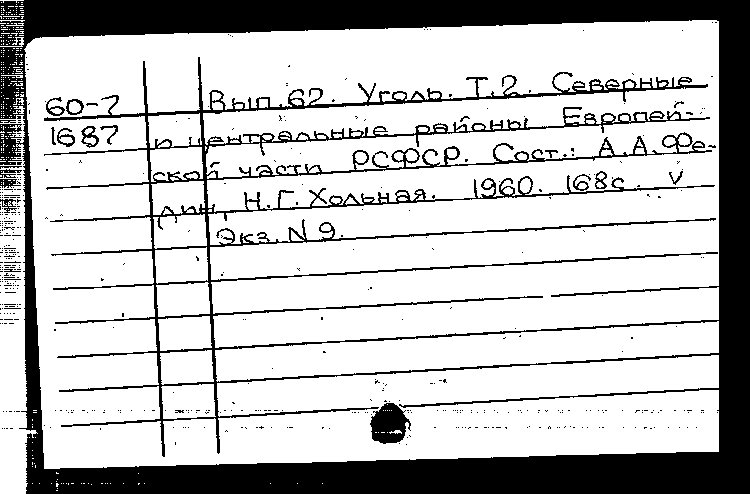 60-7 Вып.62. Уголь. Т.2. Северные
1687 и центральные районы Европей-
ской части РСФСР. Сост.: А.А.Фе-
дин, Н.Г.Хольная. 1960. 168с. V
Экз. N 9.